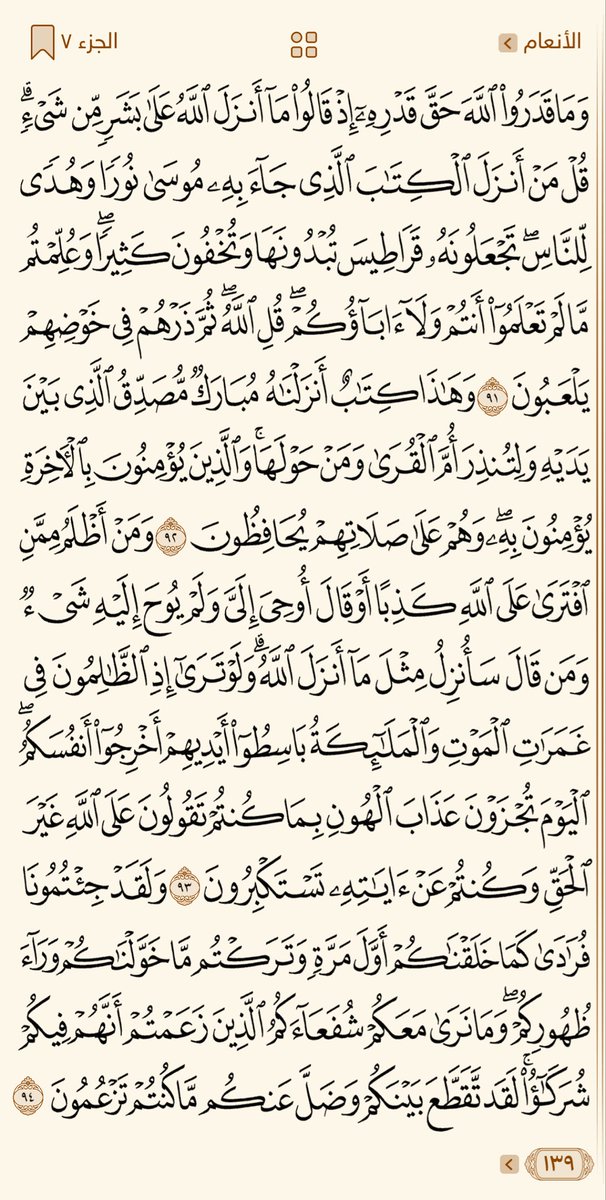 الأنعام
الجزء ٧
وَمَا قَدَرُوا۟ ٱللَّهَ حَقَّ قَدْرِهِۦٓ إِذْ قَالُوا۟ مَآ أَنزَلَ ٱللَّهُ عَلَىٰ بَشَرٍ مِّن شَىْءٍ ۗ
قُلْ مَنْ أَنزَلَ ٱلْكِتَـٰبَ ٱلَّذِى جَآءَ بِهِۦ مُوسَىٰ نُورًا وَهُدًى
لِّلنَّاسِ ۖ تَجْعَلُونَهُۥ قَرَاطِيسَ تُبْدُونَهَا وَتُخْفُونَ كَثِيرًا ۖ وَعُلِّمْتُم
مَّا لَمْ تَعْلَمُوٓا۟ أَنتُمْ وَلَآ ءَابَآؤُكُمْ ۖ قُلِ ٱللَّهُ ۖ ثُمَّ ذَرْهُمْ فِى خَوْضِهِمْ
يَلْعَبُونَ ٩١ وَهَـٰذَا كِتَـٰبٌ أَنزَلْنَـٰهُ مُبَارَكٌ مُّصَدِّقُ ٱلَّذِى بَيْنَ
يَدَيْهِ وَلِتُنذِرَ أُمَّ ٱلْقُرَىٰ وَمَنْ حَوْلَهَا ۚ وَٱلَّذِينَ يُؤْمِنُونَ بِٱلْـَٔاخِرَةِ
يُؤْمِنُونَ بِهِۦ ۖ وَهُمْ عَلَىٰ صَلَاتِهِمْ يُحَافِظُونَ ٩٢ وَمَنْ أَظْلَمُ مِمَّنِ
ٱفْتَرَىٰ عَلَى ٱللَّهِ كَذِبًا أَوْ قَالَ أُوحِىَ إِلَىَّ وَلَمْ يُوحَ إِلَيْهِ شَىْءٌ
وَمَن قَالَ سَأُنزِلُ مِثْلَ مَآ أَنزَلَ ٱللَّهُ ۗ وَلَوْ تَرَىٰٓ إِذِ ٱلظَّـٰلِمُونَ فِى
غَمَرَٰتِ ٱلْمَوْتِ وَٱلْمَلَـٰٓئِكَةُ بَاسِطُوٓا۟ أَيْدِيهِمْ أَخْرِجُوٓا۟ أَنفُسَكُمُ ۖ
ٱلْيَوْمَ تُجْزَوْنَ عَذَابَ ٱلْهُونِ بِمَا كُنتُمْ تَقُولُونَ عَلَى ٱللَّهِ غَيْرَ
ٱلْحَقِّ وَكُنتُمْ عَنْ ءَايَـٰتِهِۦ تَسْتَكْبِرُونَ ٩٣ وَلَقَدْ جِئْتُمُونَا
فُرَٰدَىٰ كَمَا خَلَقْنَـٰكُمْ أَوَّلَ مَرَّةٍ وَتَرَكْتُم مَّا خَوَّلْنَـٰكُمْ وَرَآءَ
ظُهُورِكُمْ ۖ وَمَا نَرَىٰ مَعَكُمْ شُفَعَآءَكُمُ ٱلَّذِينَ زَعَمْتُمْ أَنَّهُمْ فِيكُمْ
شُرَكَـٰٓؤُا۟ ۚ لَقَد تَّقَطَّعَ بَيْنَكُمْ وَضَلَّ عَنكُم مَّا كُنتُمْ تَزْعُمُونَ ٩٤
١٣٩